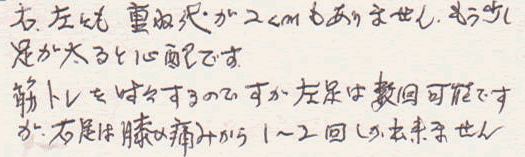 右、左とも重ね代が2cmもありません。もう少し
足が太ると心配です。
筋トレを時々するのですが左足は数回可能です
が、右足は膝の痛みから1〜2回しか出来ません